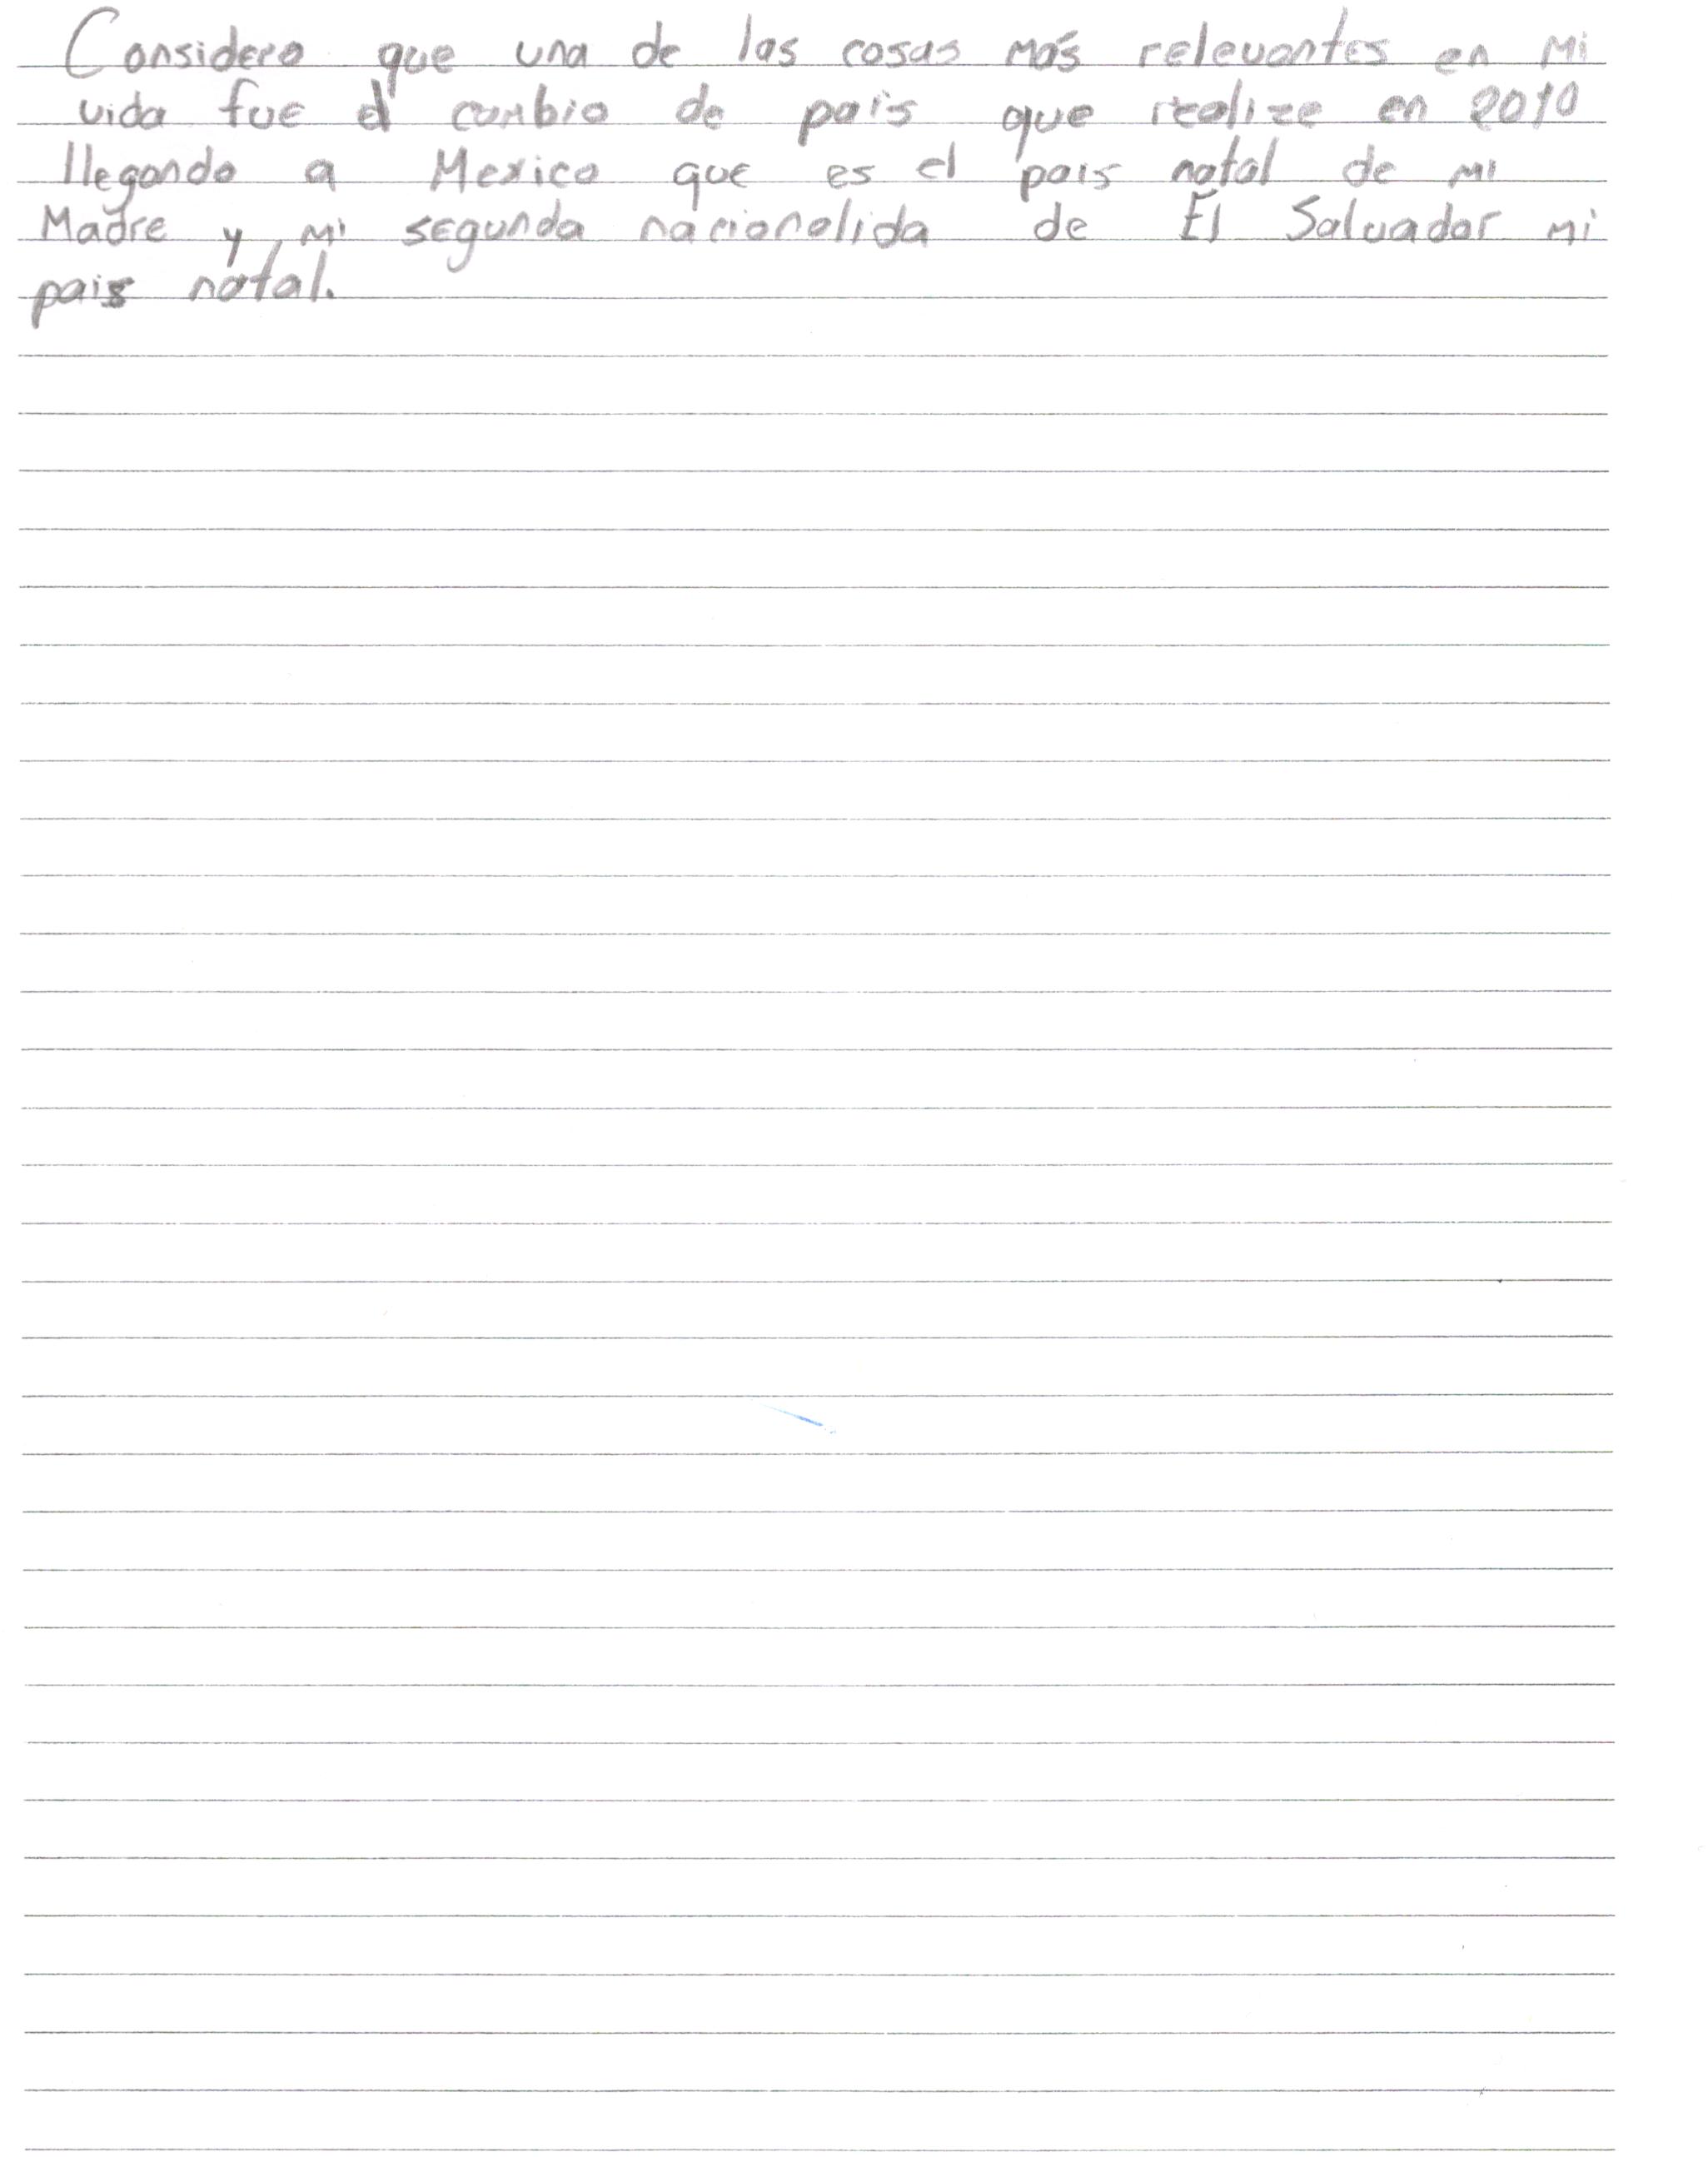 Considero que una de las cosas más relevantes en mi
vida fue el cambio de pais que realize en 2010
llegando a Mexico que es el pais natal de mi
Madre y mi segunda nacionalida de El Salvador mi
pais natal.